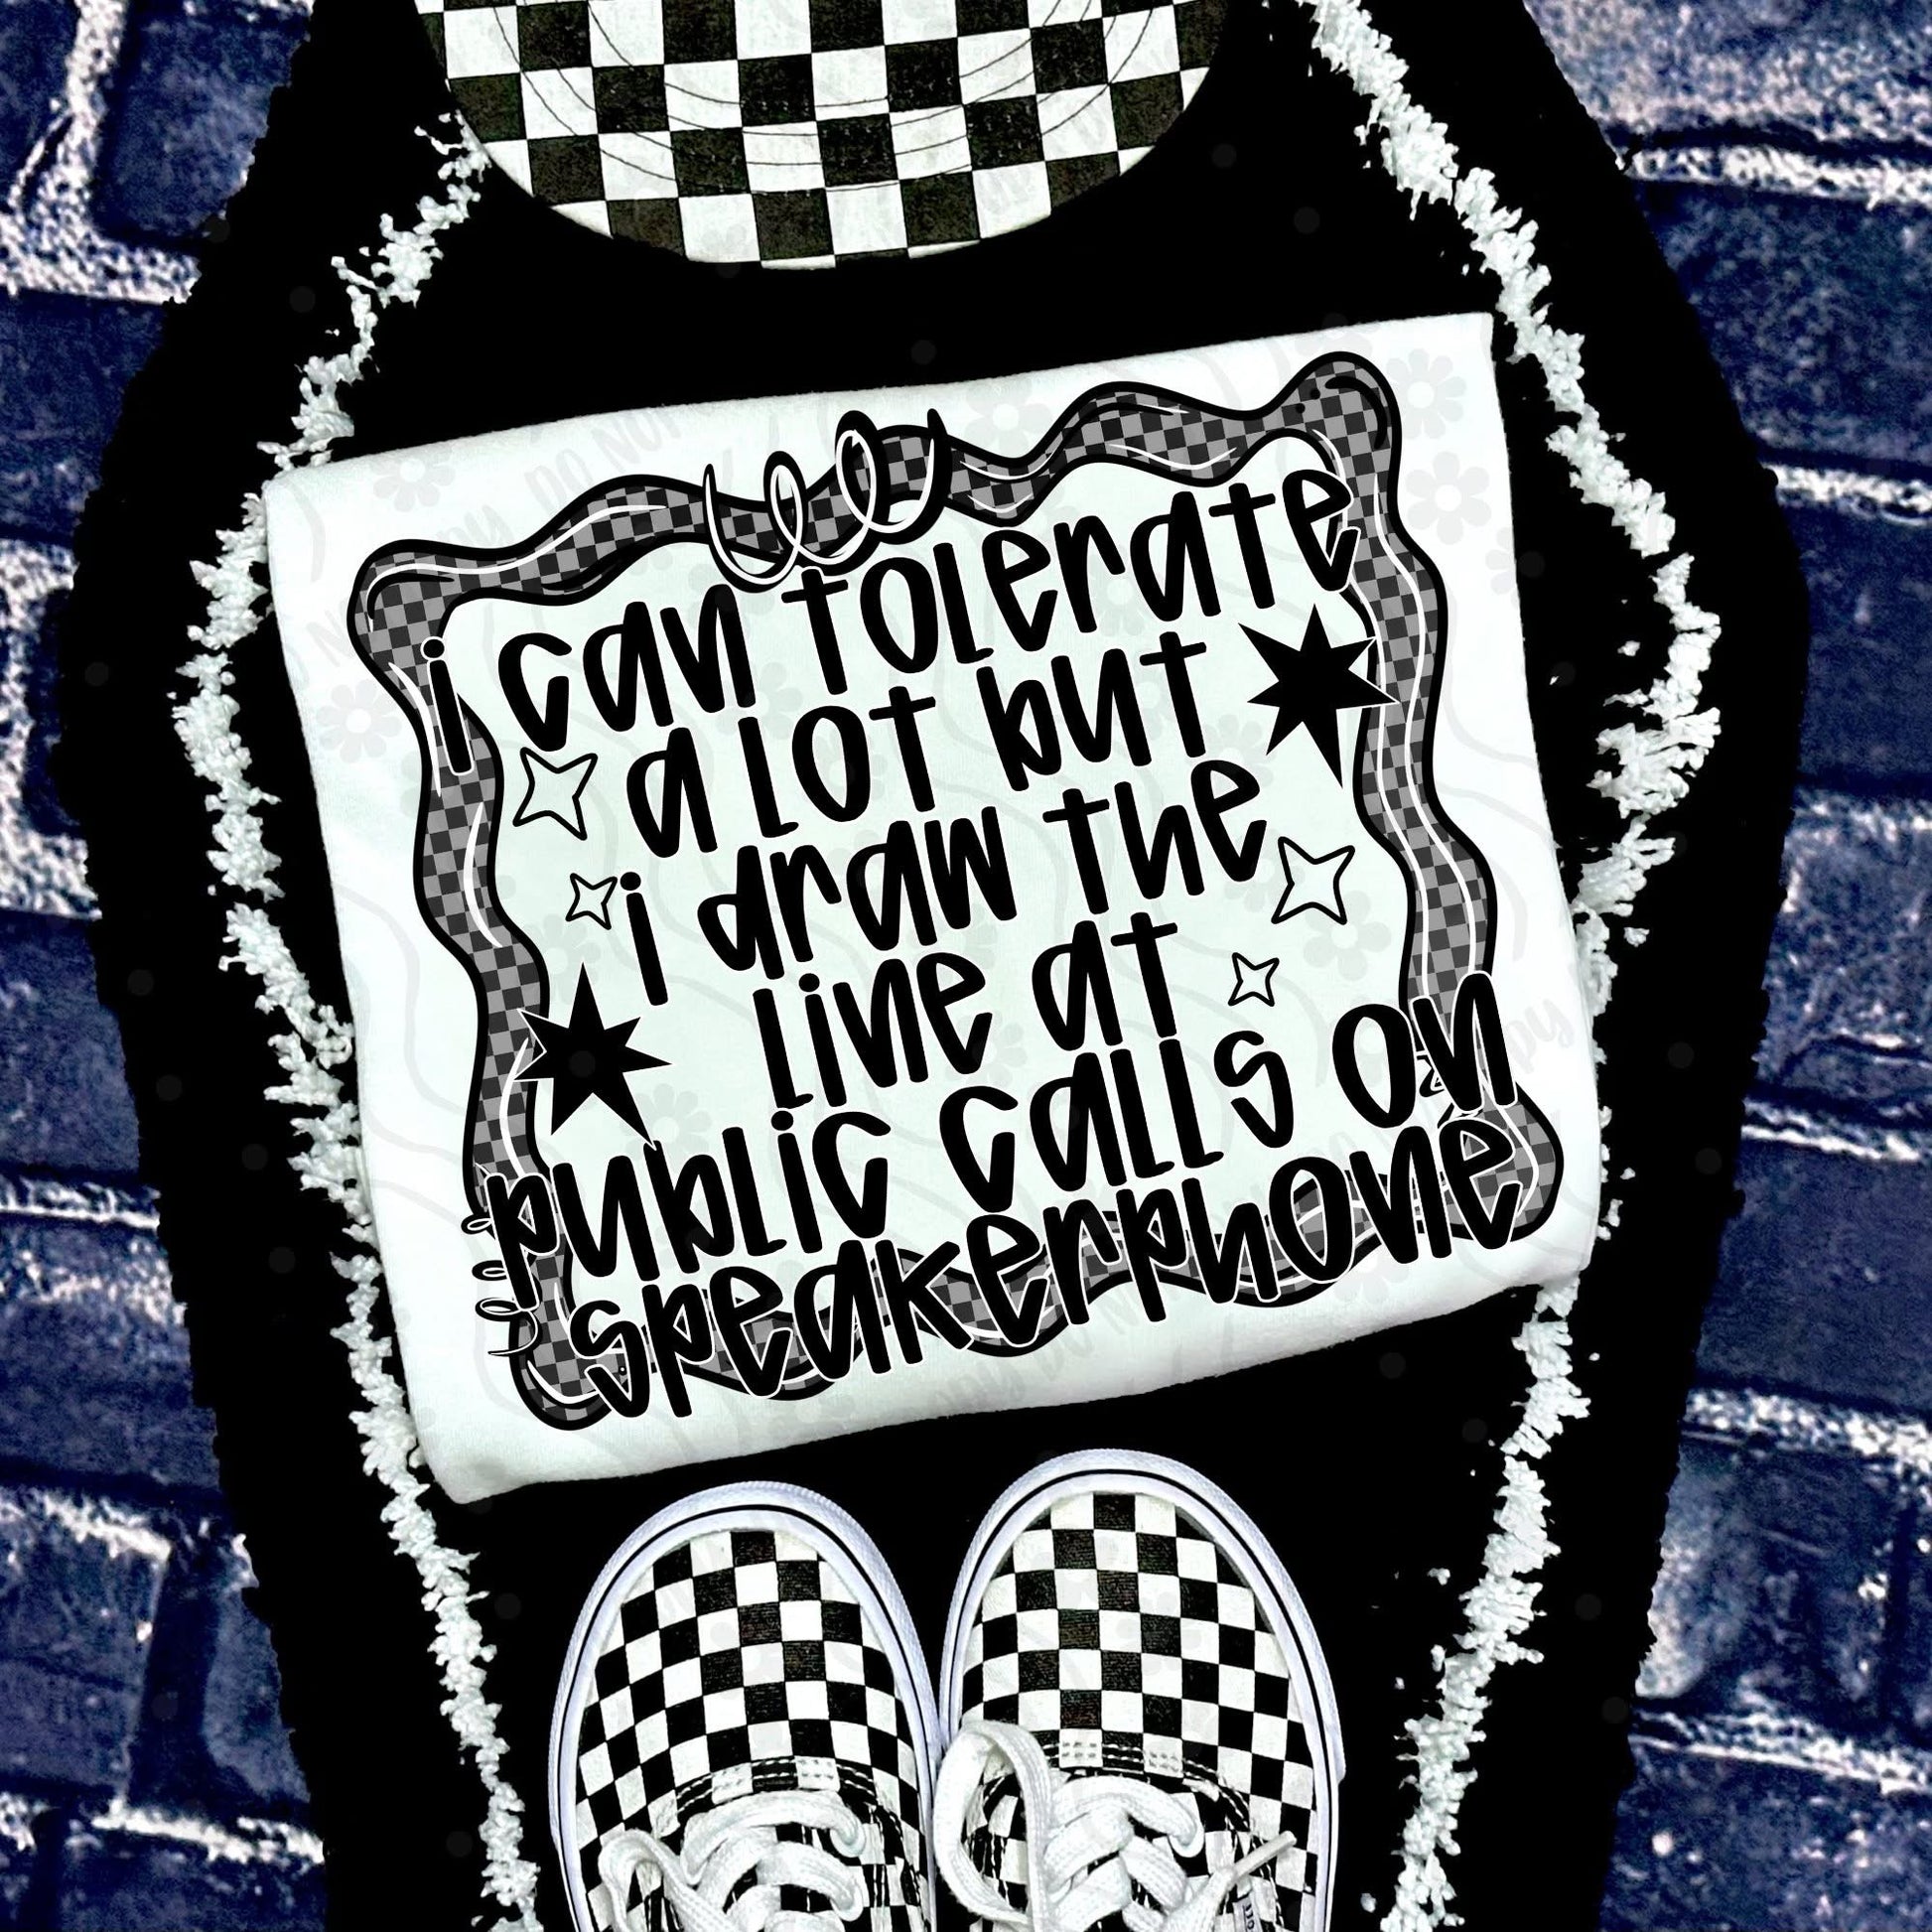 i can tolerate
a lot but
i draw the
line at
public calls on
speakerphone